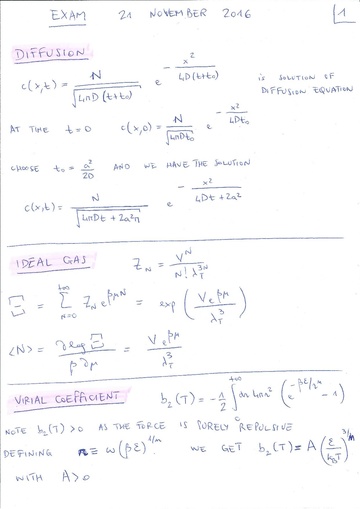 EXAM 21 NOVEMBER 2016 1
DIFFUSION
c(x,t) = N / √(4πD(t+t₀)) e^(-x²/(4D(t+t₀))) is SOLUTION OF DIFFUSION EQUATION
AT TIME t=0 c(x,0) = N / √(4πDt₀) e^(-x²/(4Dt₀))
CHOOSE t₀ = a²/2D AND WE HAVE THE SOLUTION
c(x,t) = N / √(4πDt + 2a²π) e^(-x²/(4Dt+2a²))
IDEAL GAS Z_N = V^N / (N! λ_T^(3N))
Ξ = Σ_(N=0)^(+∞) Z_N e^(βμN) = exp(V e^(βμ) / λ_T³)
⟨N⟩ = ∂log Ξ / (β ∂μ) = V e^(βμ) / λ_T³
VIRIAL COEFFICIENT b₂(T) = -1/2 ∫₀^(+∞) dr 4πr² (e^(-βε/r^n) - 1)
NOTE b₂(T)>0 AS THE FORCE IS PURELY REPULSIVE
DEFINING r ≡ w(βε)^(1/n) WE GET b₂(T) = A (ε/(k_BT))^(3/n)
WITH A>0